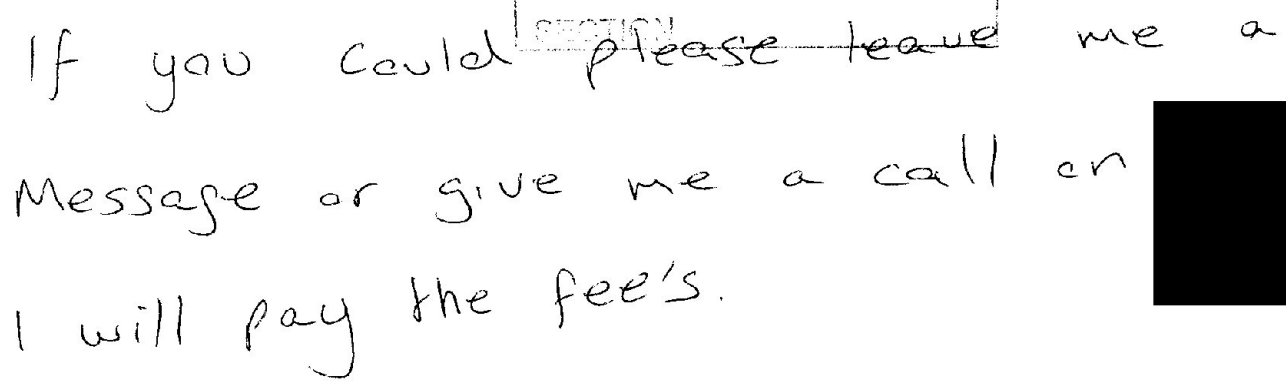 SECTION
If you could please leave me a
Message or give me a call on
I will pay the fee's.